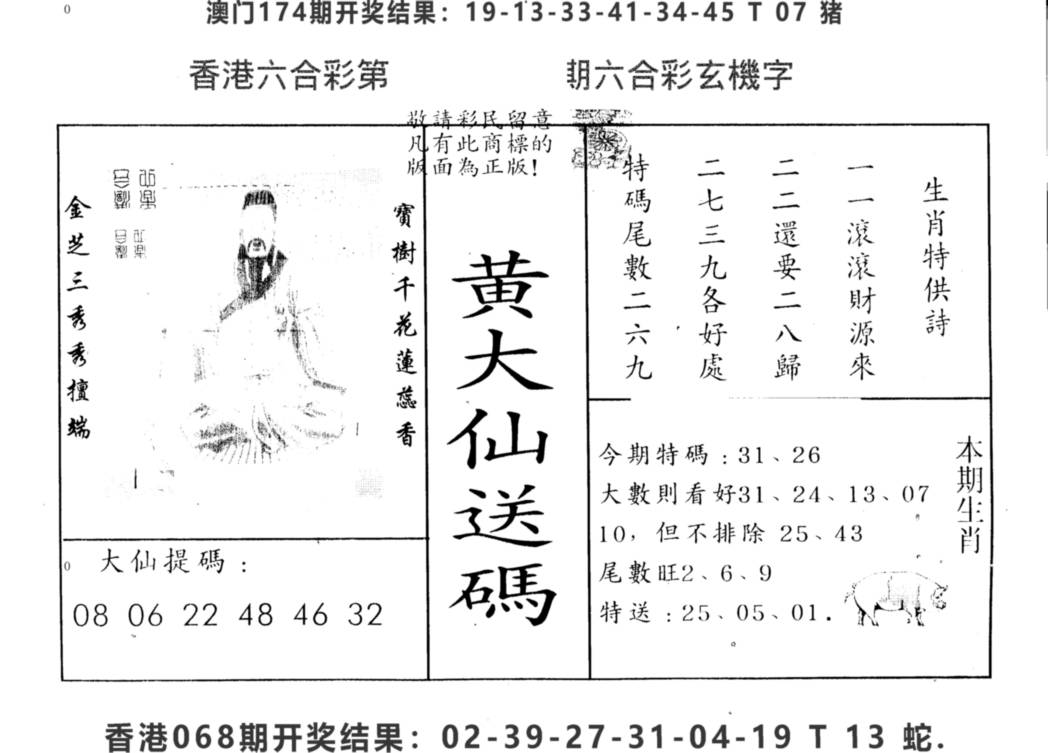 澳门174期开奖结果：19-13-33-41-34-45 T 07 猪
香港六合彩第 期六合彩玄機字
敬請彩民留意
凡有此商標的
版面為正版！
金芝三秀秀擅端
寶樹千花蓮蕊香
黄大仙送碼
生肖特供詩
一一滾滾財源來
二二還要二八歸
二七三九各好處
特碼尾數二六九
大仙提碼：
08 06 22 48 46 32
本期生肖
今期特碼：31、26
大數則看好31、24、13、07
10，但不排除 25、43
尾數旺2、6、9
特送：25、05、01．
香港068期开奖结果：02-39-27-31-04-19 T 13 蛇.